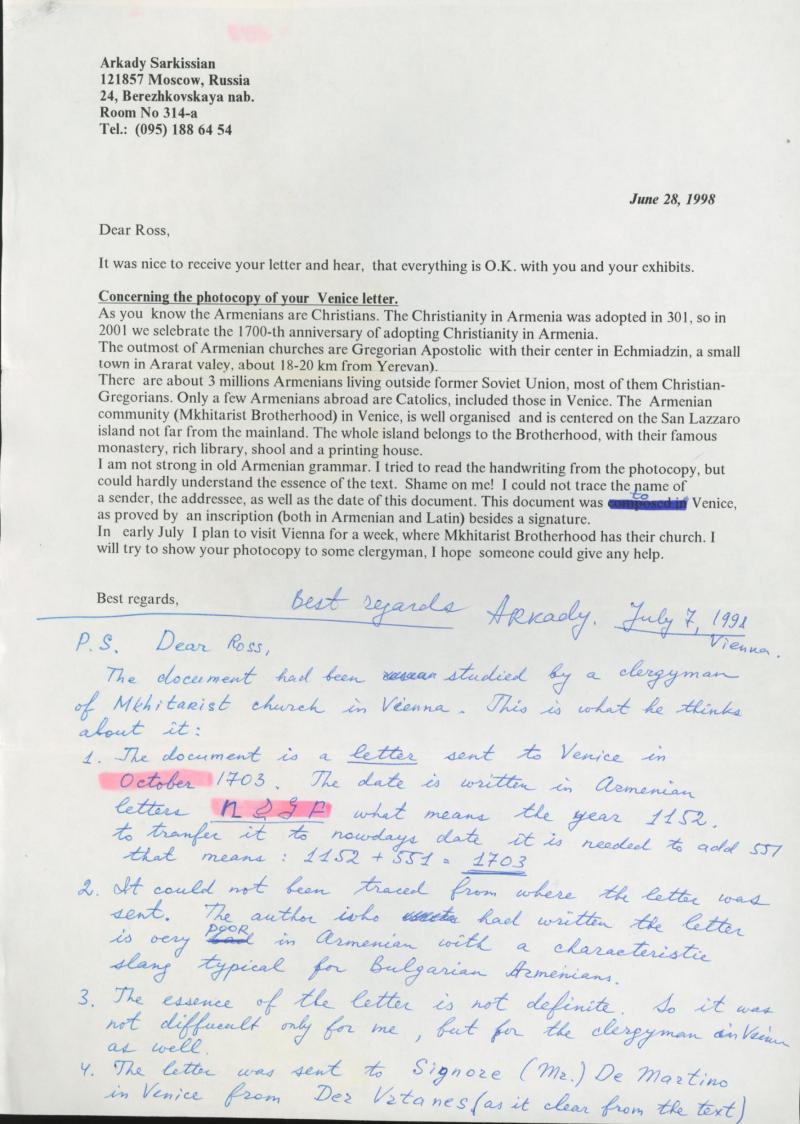 Arkady Sarkissian
121857 Moscow, Russia
24, Berezhkovskaya nab.
Room No 314-a
Tel.: (095) 188 64 54
June 28, 1998
Dear Ross,
It was nice to receive your letter and hear, that everything is O.K. with you and your exhibits.
Concerning the photocopy of your Venice letter.
As you know the Armenians are Christians. The Christianity in Armenia was adopted in 301, so in
2001 we selebrate the 1700-th anniversary of adopting Christianity in Armenia.
The outmost of Armenian churches are Gregorian Apostolic with their center in Echmiadzin, a small
town in Ararat valey, about 18-20 km from Yerevan).
There are about 3 millions Armenians living outside former Soviet Union, most of them Christian-
Gregorians. Only a few Armenians abroad are Catolics, included those in Venice. The Armenian
community (Mkhitarist Brotherhood) in Venice, is well organised and is centered on the San Lazzaro
island not far from the mainland. The whole island belongs to the Brotherhood, with their famous
monastery, rich library, shool and a printing house.
I am not strong in old Armenian grammar. I tried to read the handwriting from the photocopy, but
could hardly understand the essence of the text. Shame on me! I could not trace the name of
a sender, the addressee, as well as the date of this document. This document was to composed in Venice,
as proved by an inscription (both in Armenian and Latin) besides a signature.
In early July I plan to visit Vienna for a week, where Mkhitarist Brotherhood has their church. I
will try to show your photocopy to some clergyman, I hope someone could give any help.
Best regards, Best regards Arkady. July 7, 1998
Vienna.
P.S. Dear Ross,
The document had been studied by a clergyman
of Mkhitarist church in Vienna. This is what he thinks
about it:
1. The document is a letter sent to Venice in
October 1703. The date is written in Armenian
letters what means the year 1152.
to tranfer it to nowdays date it is needed to add 551
that means: 1152 + 551 = 1703
2. It could not been traced from where the letter was
sent. The author who had written the letter
is very POOR in Armenian with a characteristic
slang typical for Bulgarian Armenians.
3. The essence of the letter is not definite. So it was
not diffucult only for me, but for the clergyman in Vienna
as well.
4. The letter was sent to Signore (Mr.) De Martino
in Venice from Der Vrtanes (as it clear from the text)